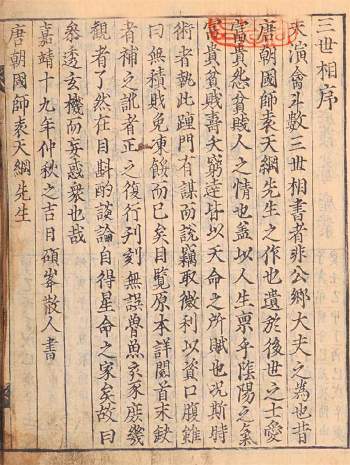 三世相序
夫演禽斗數三世相書者非公鄉大夫之為也昔
唐朝國師袁天綱先生之作也遺於後世之士愛
富貴怨貧賤人之情也盖以人生禀乎陰陽之氣
富貴貧賤壽夭窮達皆以天命之所賦也况斯時
術者執此踵門有謀而說竊取微利以資口腹雖
曰無積賎免凍餒而已矣目覧原本詳閱首末鈌
者補之訛者正之復行刋刻無誤魯魚亥豕庻幾
觀者了然在目斟酌談論自得星命之家矣故曰
叅透玄機而妄惑衆也哉
嘉靖十九年仲秋之吉日碩峯散人書
唐朝國師袁天綱先生